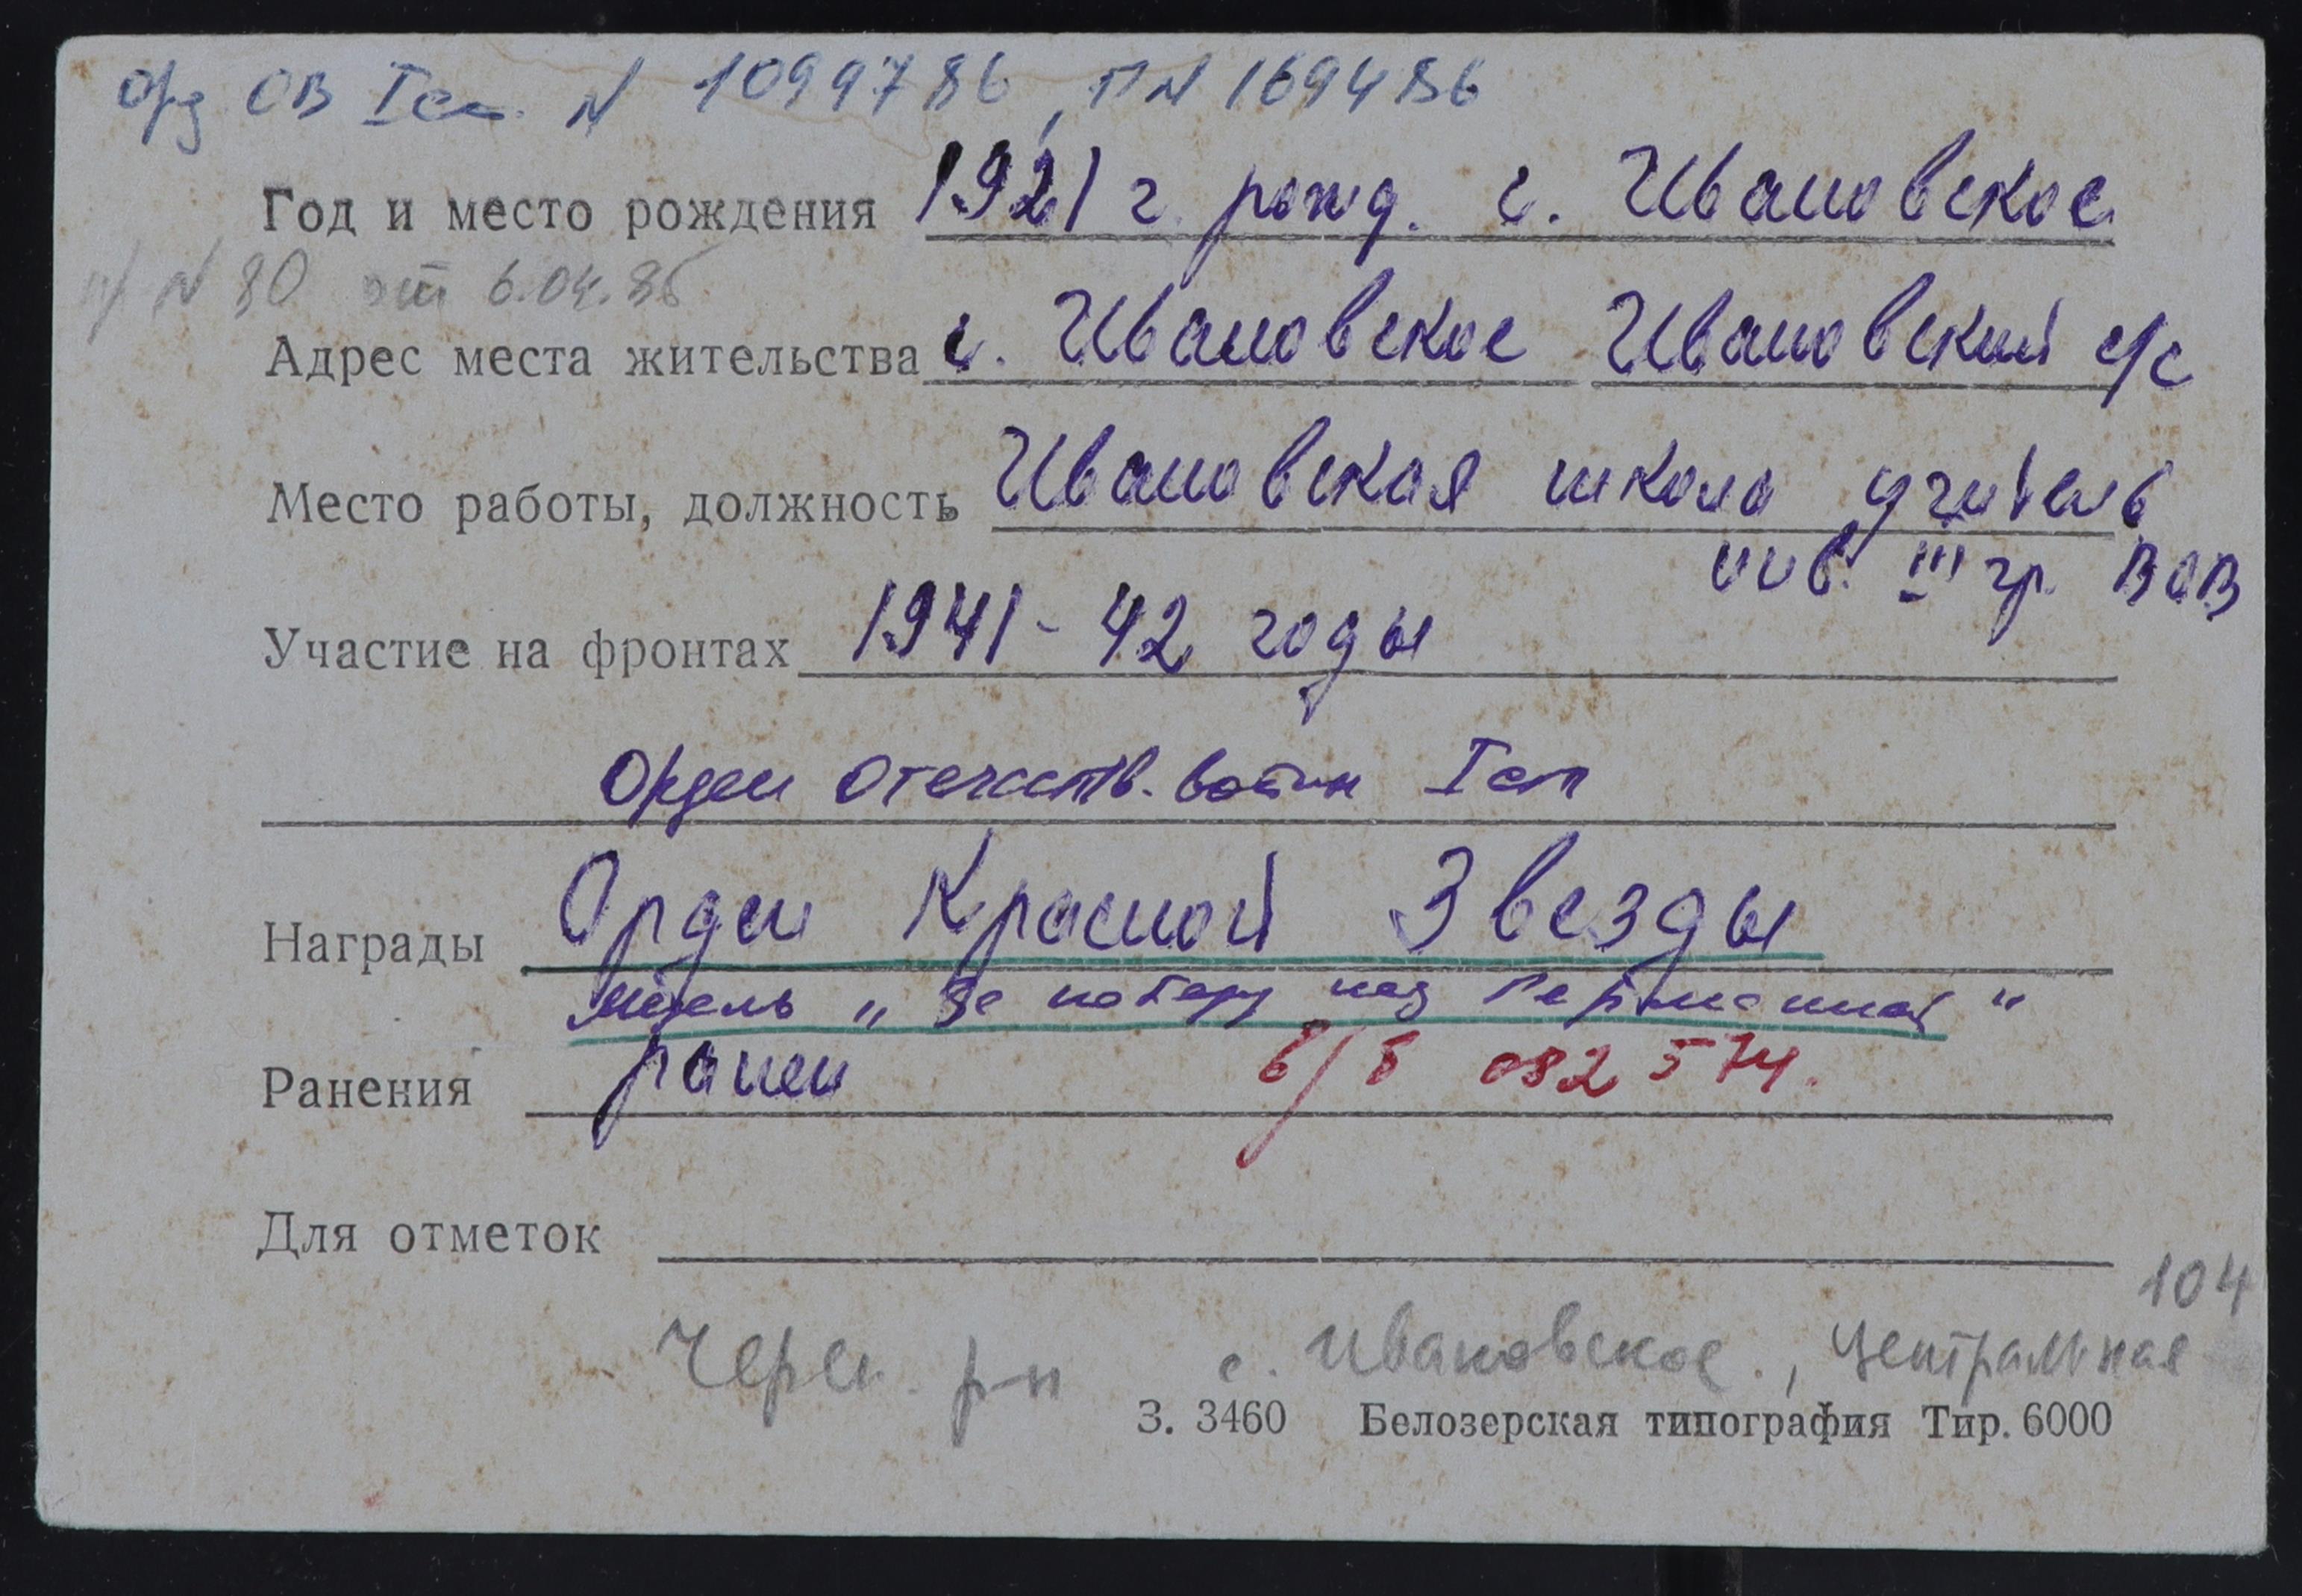 орд ОВ I ст. N 1099786, ПN 169486
Год и место рождения 1921 г. рожд. с. Ивановское
N 80 от 6.04.85
Адрес места жительства с. Ивановское Ивановский с/с
Место работы, должность Ивановская школа учитель
инв. III гр. ВОВ
Участие на фронтах 1941-42 годы
Орден Отечеств. войны I ст
Награды Орден Красной Звезды
медаль „За победу над Германией"
Ранения ранен в/б 082574.
Для отметок
104
Череп. р-н с. Ивановское., Центральная
З. 3460 Белозерская типография Тир. 6000